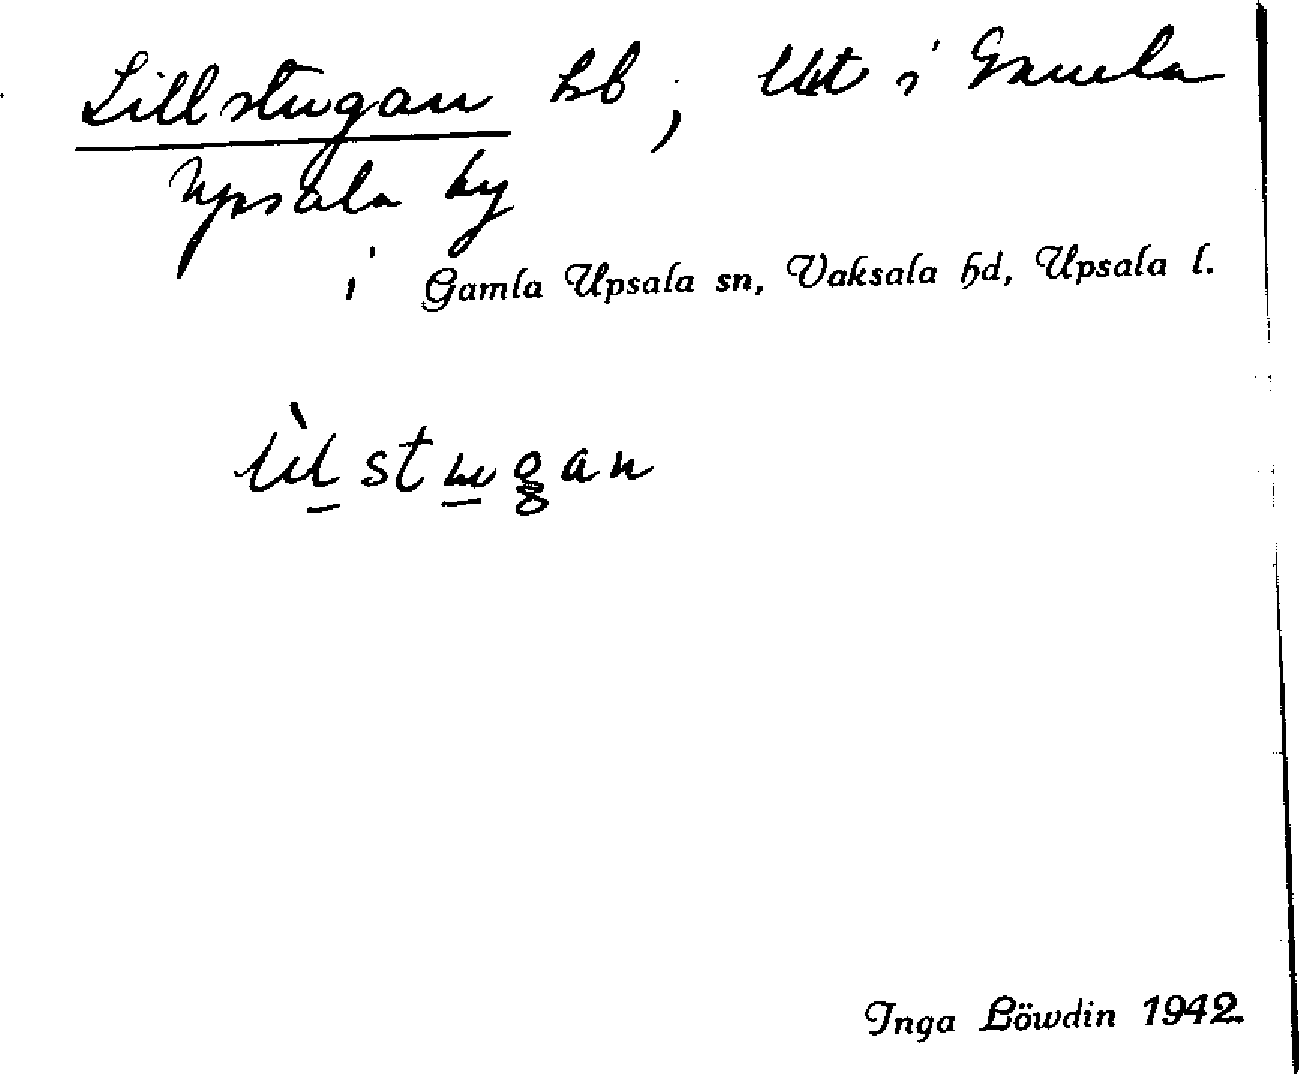 Lillstugan hb, litt i Gamla
Upsala by
i Gamla Upsala sn, Vaksala hd, Upsala l.
lìlstugan
Inga Löwdin 1942